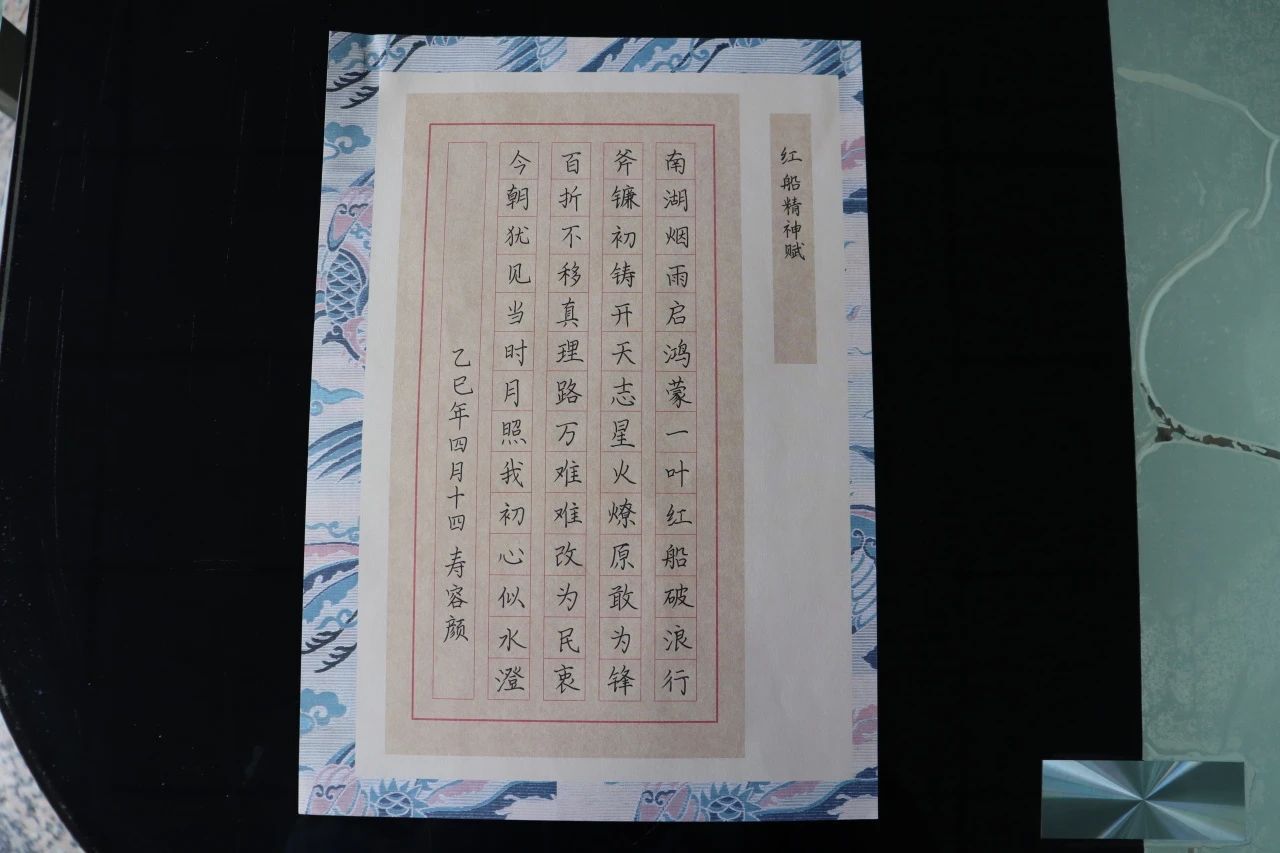 红船精神赋
南湖烟雨启鸿蒙一叶红船破浪行
斧镰初铸开天志星火燎原敢为锋
百折不移真理路万难难改为民衷
今朝犹见当时月照我初心似水澄
乙巳年四月十四 寿容颜